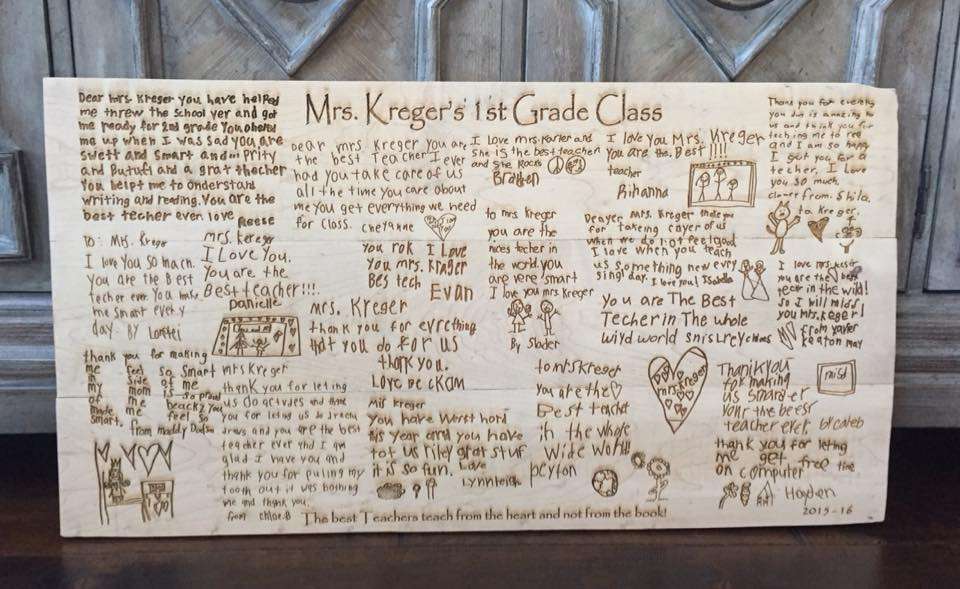 Mrs. Kreger's 1st Grade Class
Dear Mrs. Kreger you have helped
me threw the School yer and got
me ready for 2nd grade You
me up when I was sad you are
swett and smart and Prity
and Butufl and a grat thecher
You helpt me to onderstand
writing and reading. You are the
best techer even love
Reese
Dear mrs kreger You are
the best Teacher I ever
had you take care of us
all the time you care about
me You get everything we need
for class. cheyanne
I Love mrs. and
She is the best teacher
and she Rocks
Braden
I love You Mrs. Kreger
You are the Best !!!!
teacher
Rihanna
Thank you for
you do is amazing to
us and think you for
teching me to red
and I am so happy
I got you for a
techer, I Love
you so much.
from. Shila
to Kreger.
To: Mrs. Kreger
I love You so mach.
You are the Best
techer ever. You make
me smart every
day. By
mrs. Kereger
I Love You.
You are the
Best teacher!!!.
Danielle
You rok I Love
You mrs. Krager
Bes tech
Evan
to mrs kreger
you are the
nices techer in
the world. you
are vere smart
I love you mrs Kreger
By Slader
mrs. Kreger thank you
for taking cayer of us
when we do not feel good
I love when you teach
us something new every
singl day. I love you!
I love mrs.
you are the best
in the wrild!
so I will miss
you mrs. Keger!
from xavier
Keaton may
You are The Best
Techer in The whole
wiyd world
mrs. Kreger
thank you for evrething
that you do for us
thank you.
Love Beckam
thank you for making
me feel so smart
in side of me
my mom is so proud
of me
made me feel so
smart. from maddy
mrs Kreger
thank you for leting
us do and thank
you for leting us
and you are the best
teacher ever and I am
glad I have you and
thank you for puling my
tooth out it was
me and thank you.
from chloe.B
mis kreger
You have wort hord
this year and you have
tot us riley grat stuf
it is so fun. Love
Lynnleigh
to mrs kreger
You are the
Best teacher
in the whole
wide world
peyton
mrs. Kreger
Thank you
for making
us smarter
your the
teacher ever. by caleb
thank you for leting
me get free time
on computer
Hayden
The best Teachers teach from the heart and not from the book!
2015-16